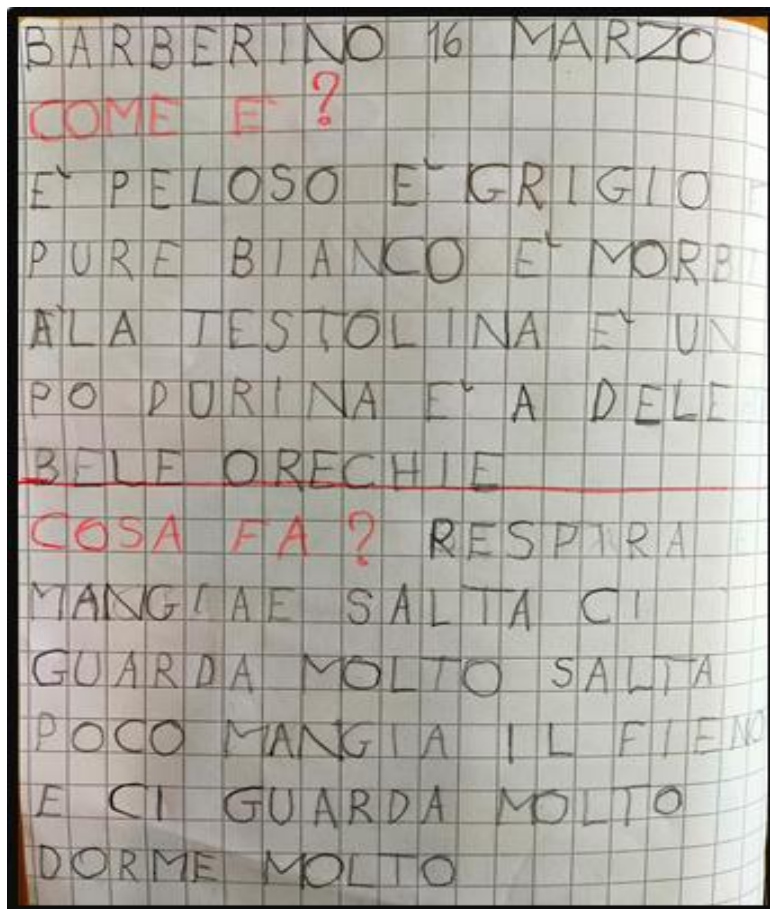 BARBERINO 16 MARZO
COME E' ?
E' PELOSO E' GRIGIO E
PURE BIANCO E' MORBI
A' LA TESTOLINA E' UN
PO DURINA E' A DELE
BELE ORECHIE
COSA FA ? RESPIRA E
MANGIAE SALTA CI
GUARDA MOLTO SALTA
POCO MANGIA IL FIENO
E CI GUARDA MOLTO
DORME MOLTO